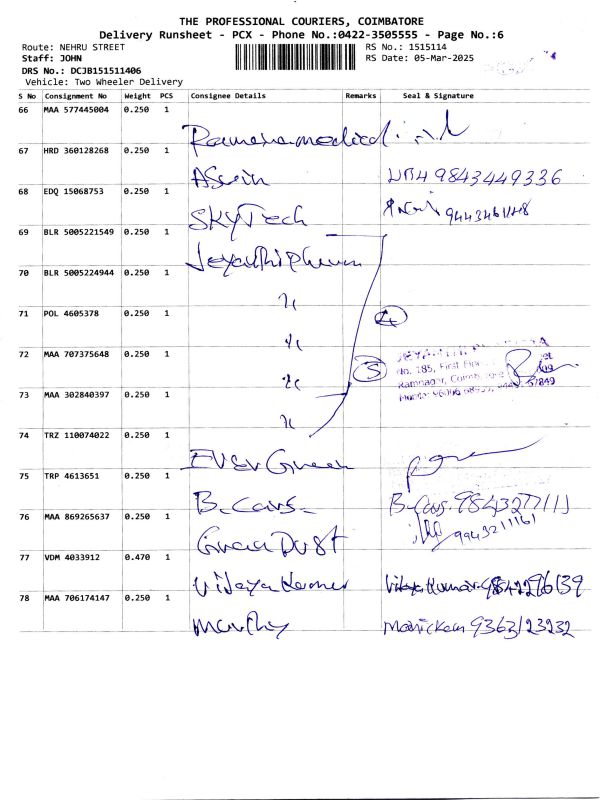 THE PROFESSIONAL COURIERS, COIMBATORE
Delivery Runsheet - PCX - Phone No.:0422-3505555 - Page No.:6
Route: NEHRU STREET RS No.: 1515114
Staff: JOHN RS Date: 05-Mar-2025
DRS No.: DCJB151511406
Vehicle: Two Wheeler Delivery
S No Consignment No Weight PCS Consignee Details Remarks Seal & Signature
66 MAA 577445004 0.250 1
67 HRD 360128268 0.250 1 Aswin 9843449336
68 EDQ 15068753 0.250 1 SKYTech
69 BLR 5005221549 0.250 1
70 BLR 5005224944 0.250 1
71 POL 4605378 0.250 1 4
72 MAA 707375648 0.250 1 5 No. 185, First
Ramnagar,
73 MAA 302840397 0.250 1
74 TRZ 110074022 0.250 1 EVER Green
75 TRP 4613651 0.250 1 B. Cars. B-Cars. 9843277111
76 MAA 869265637 0.250 1 Green Dust 9943211161
77 VDM 4033912 0.470 1 Vijaya Kumar Vijaya Kumar
78 MAA 706174147 0.250 1 Manickam 9363123232